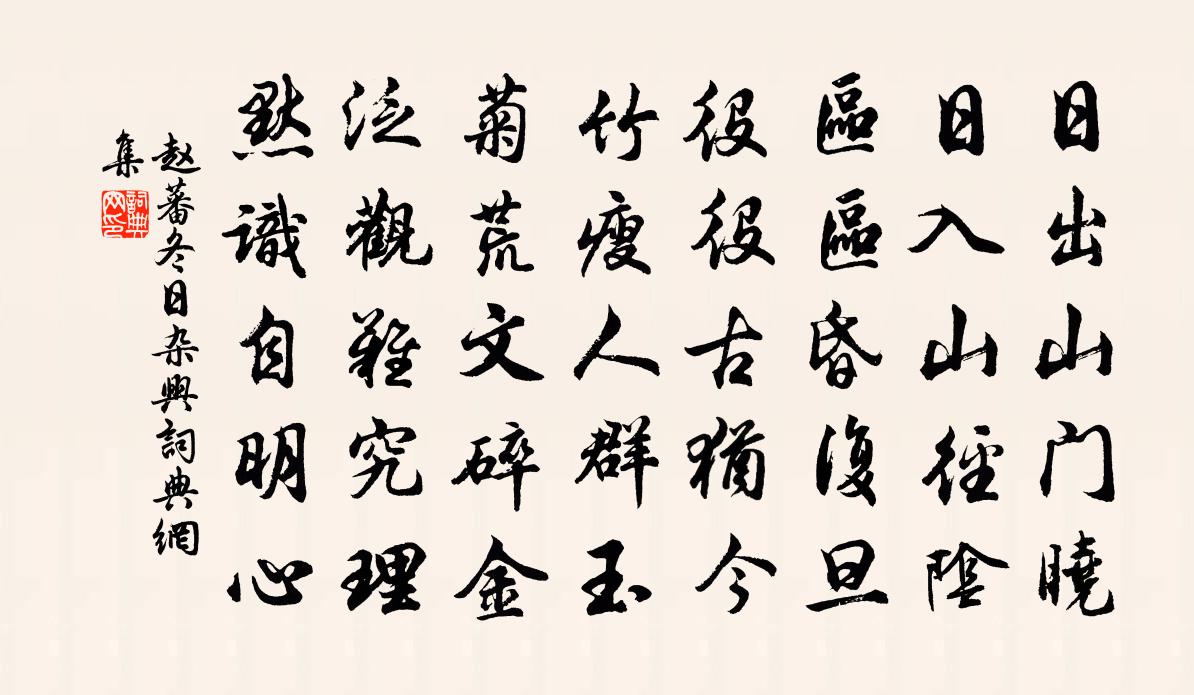 日出山门曉
日入山徑陰
區區昏復旦
役役古猶今
竹瘦人群玉
菊荒文碎金
泛觀難究理
默識自明心
赵蕃冬日杂興詞典網
集
詞典网印